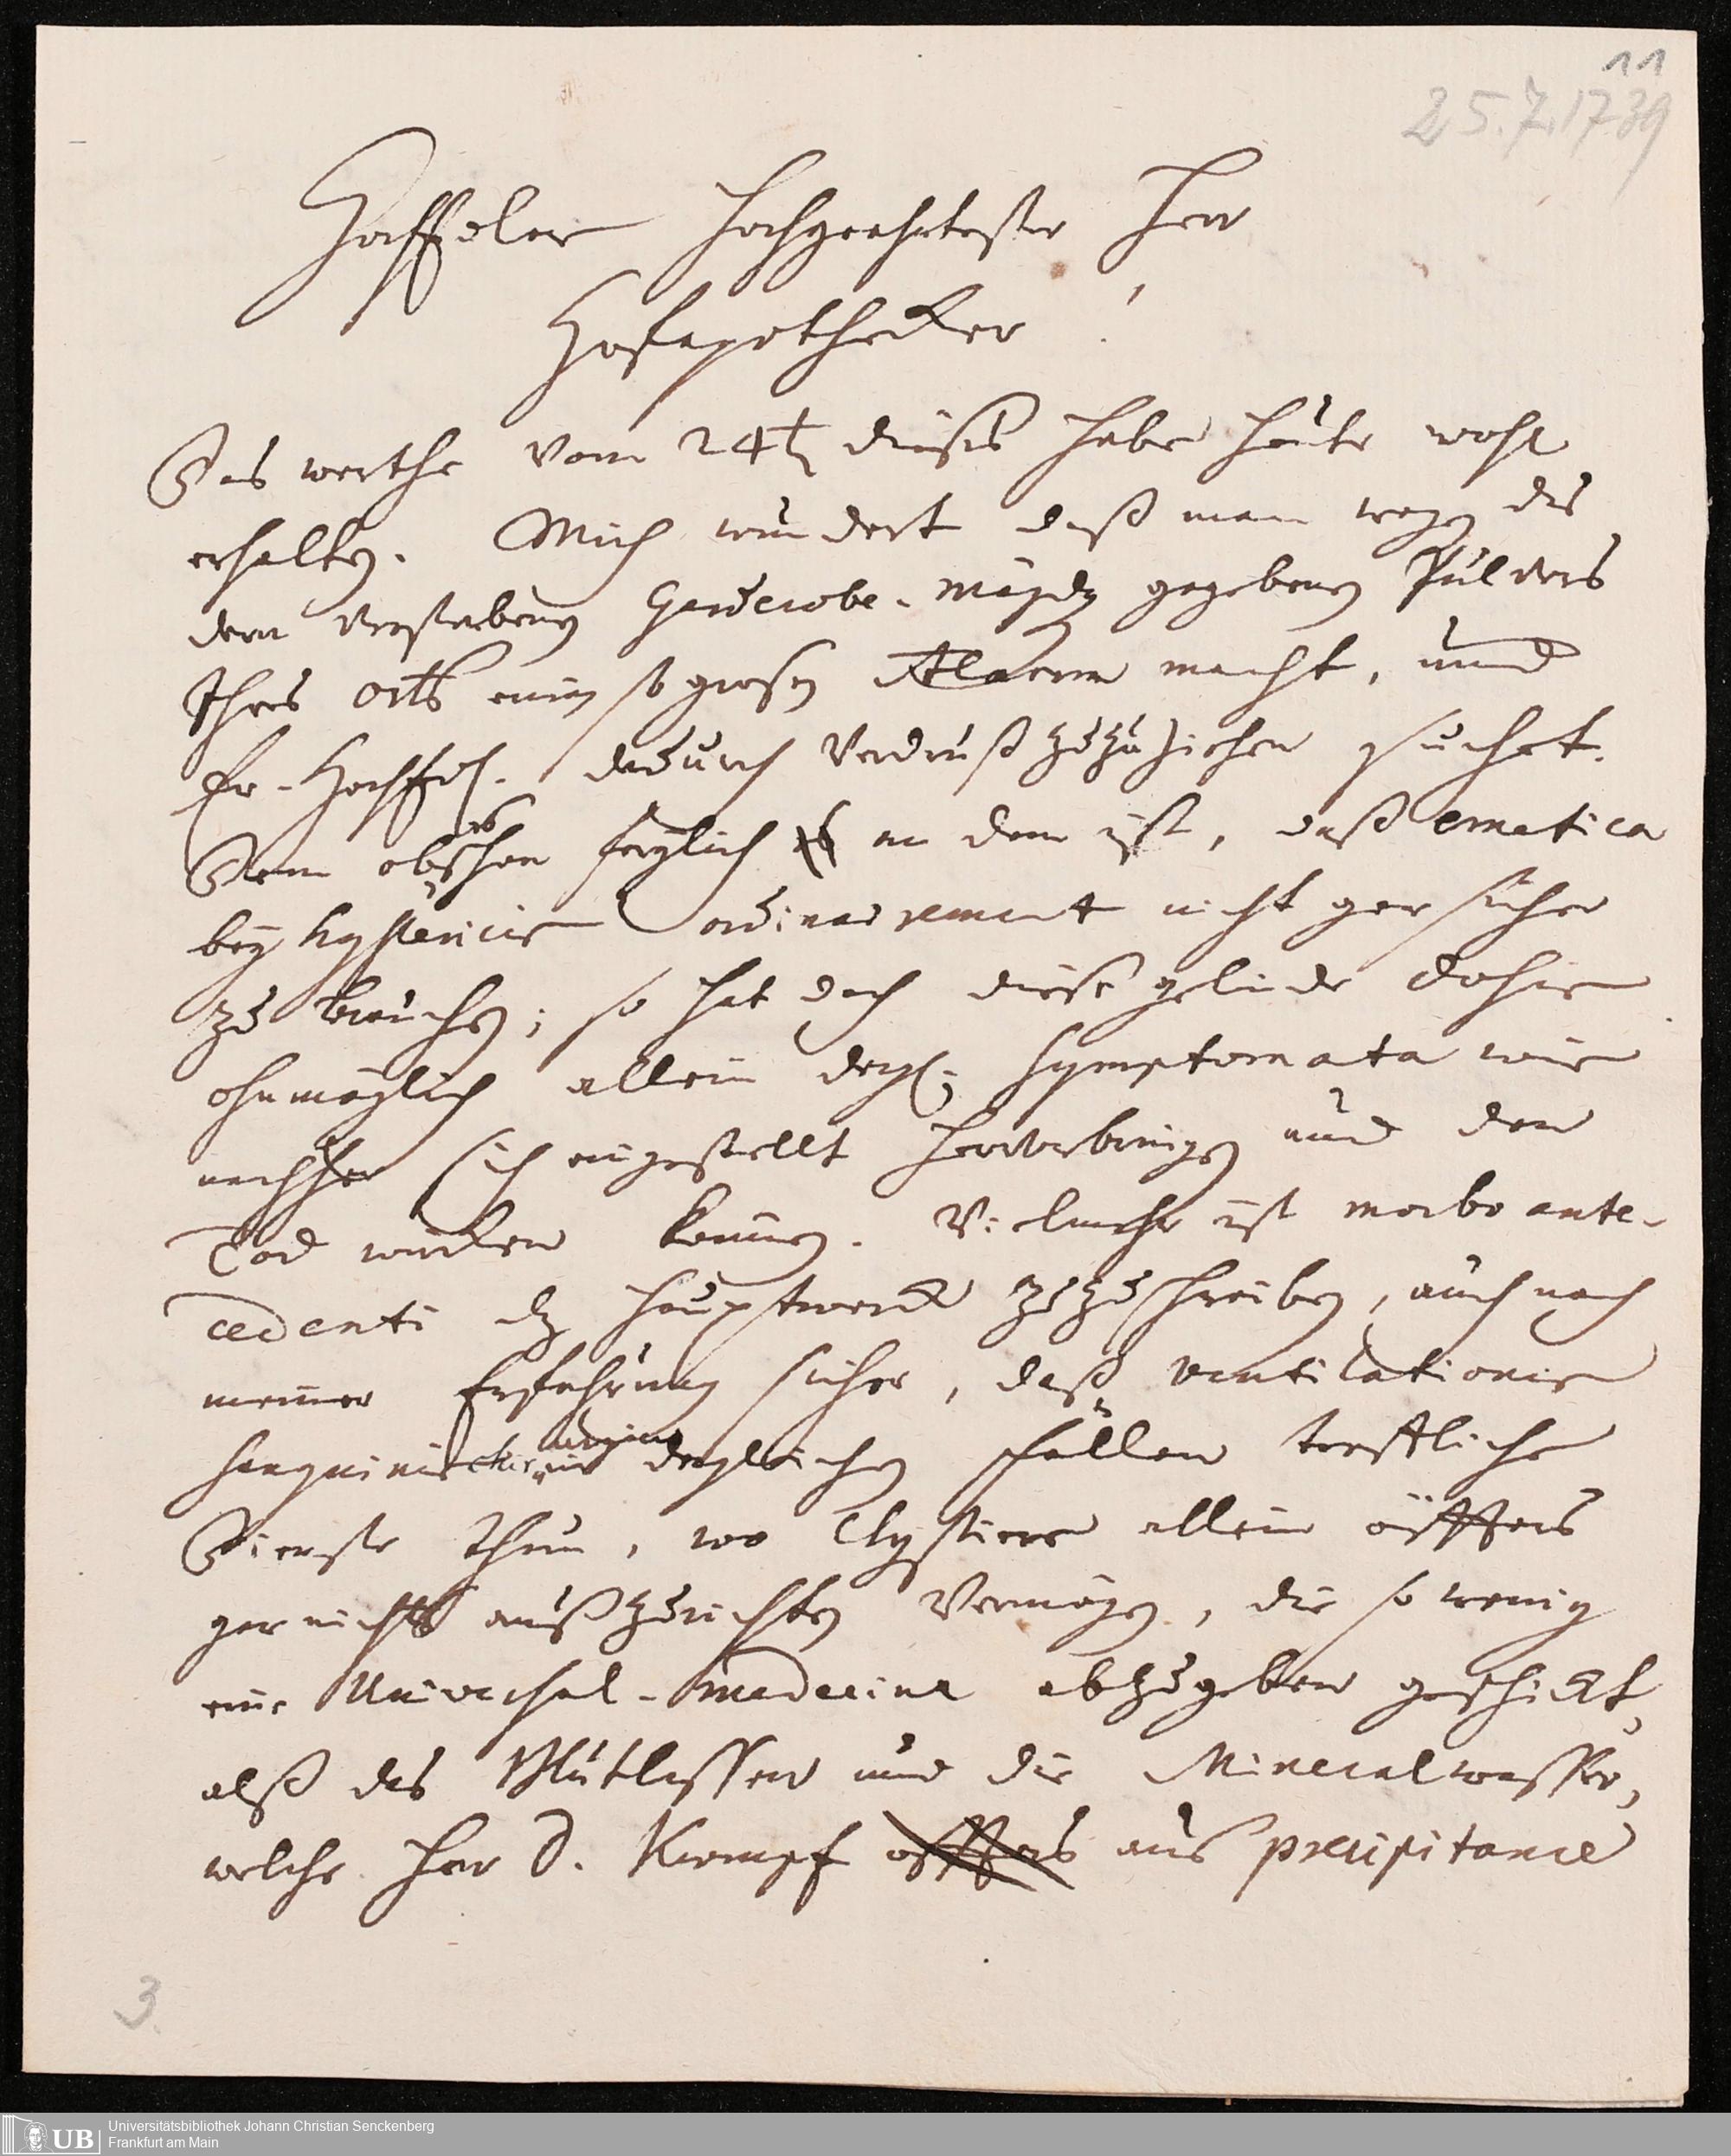 11
25.7.1739
Hochedler Hochgeehrtester Herr
Hofapothecker!
Das werthe vom 24t dieses habe heute wohl
erhalten. Mich wundert daß man wegen des
dem verstorbenen Garderobe-mägdg gegebenen Pulvers
Ihres Orts einen so großen Alarm macht, und
Ew. Hochedl. dadurch Verdruß zuzuziehen suchet.
Denn obschon es freylich an dem ist, daß emetica
bey hystericis ordinairement nicht gar sicher
zu brauchen; so hat doch diese gelinde dosis
ohnmöglich allein dergl. symptomata wie
nachher sich eingestellt hervorbringen und den
Tod wircken können. Vielmehr ist morbo ante-
cedenti dz Hauptwerck zuzuschreiben, auch nach
meiner Erfahrung sicher, daß ventilationes
sanguinis in dergleichen Fällen treffliche
Dienste thun, wo Clystiere allein öffters
gar nichts außzurichten vermögen, die so wenig
eine Universal-medecine abzugeben geschickt,
alß das Blutlassen und die Mineralwasser,
welche Herr D. Kämpf öffters aus precipitance
3.
UB Universitätsbibliothek Johann Christian Senckenberg
Frankfurt am Main